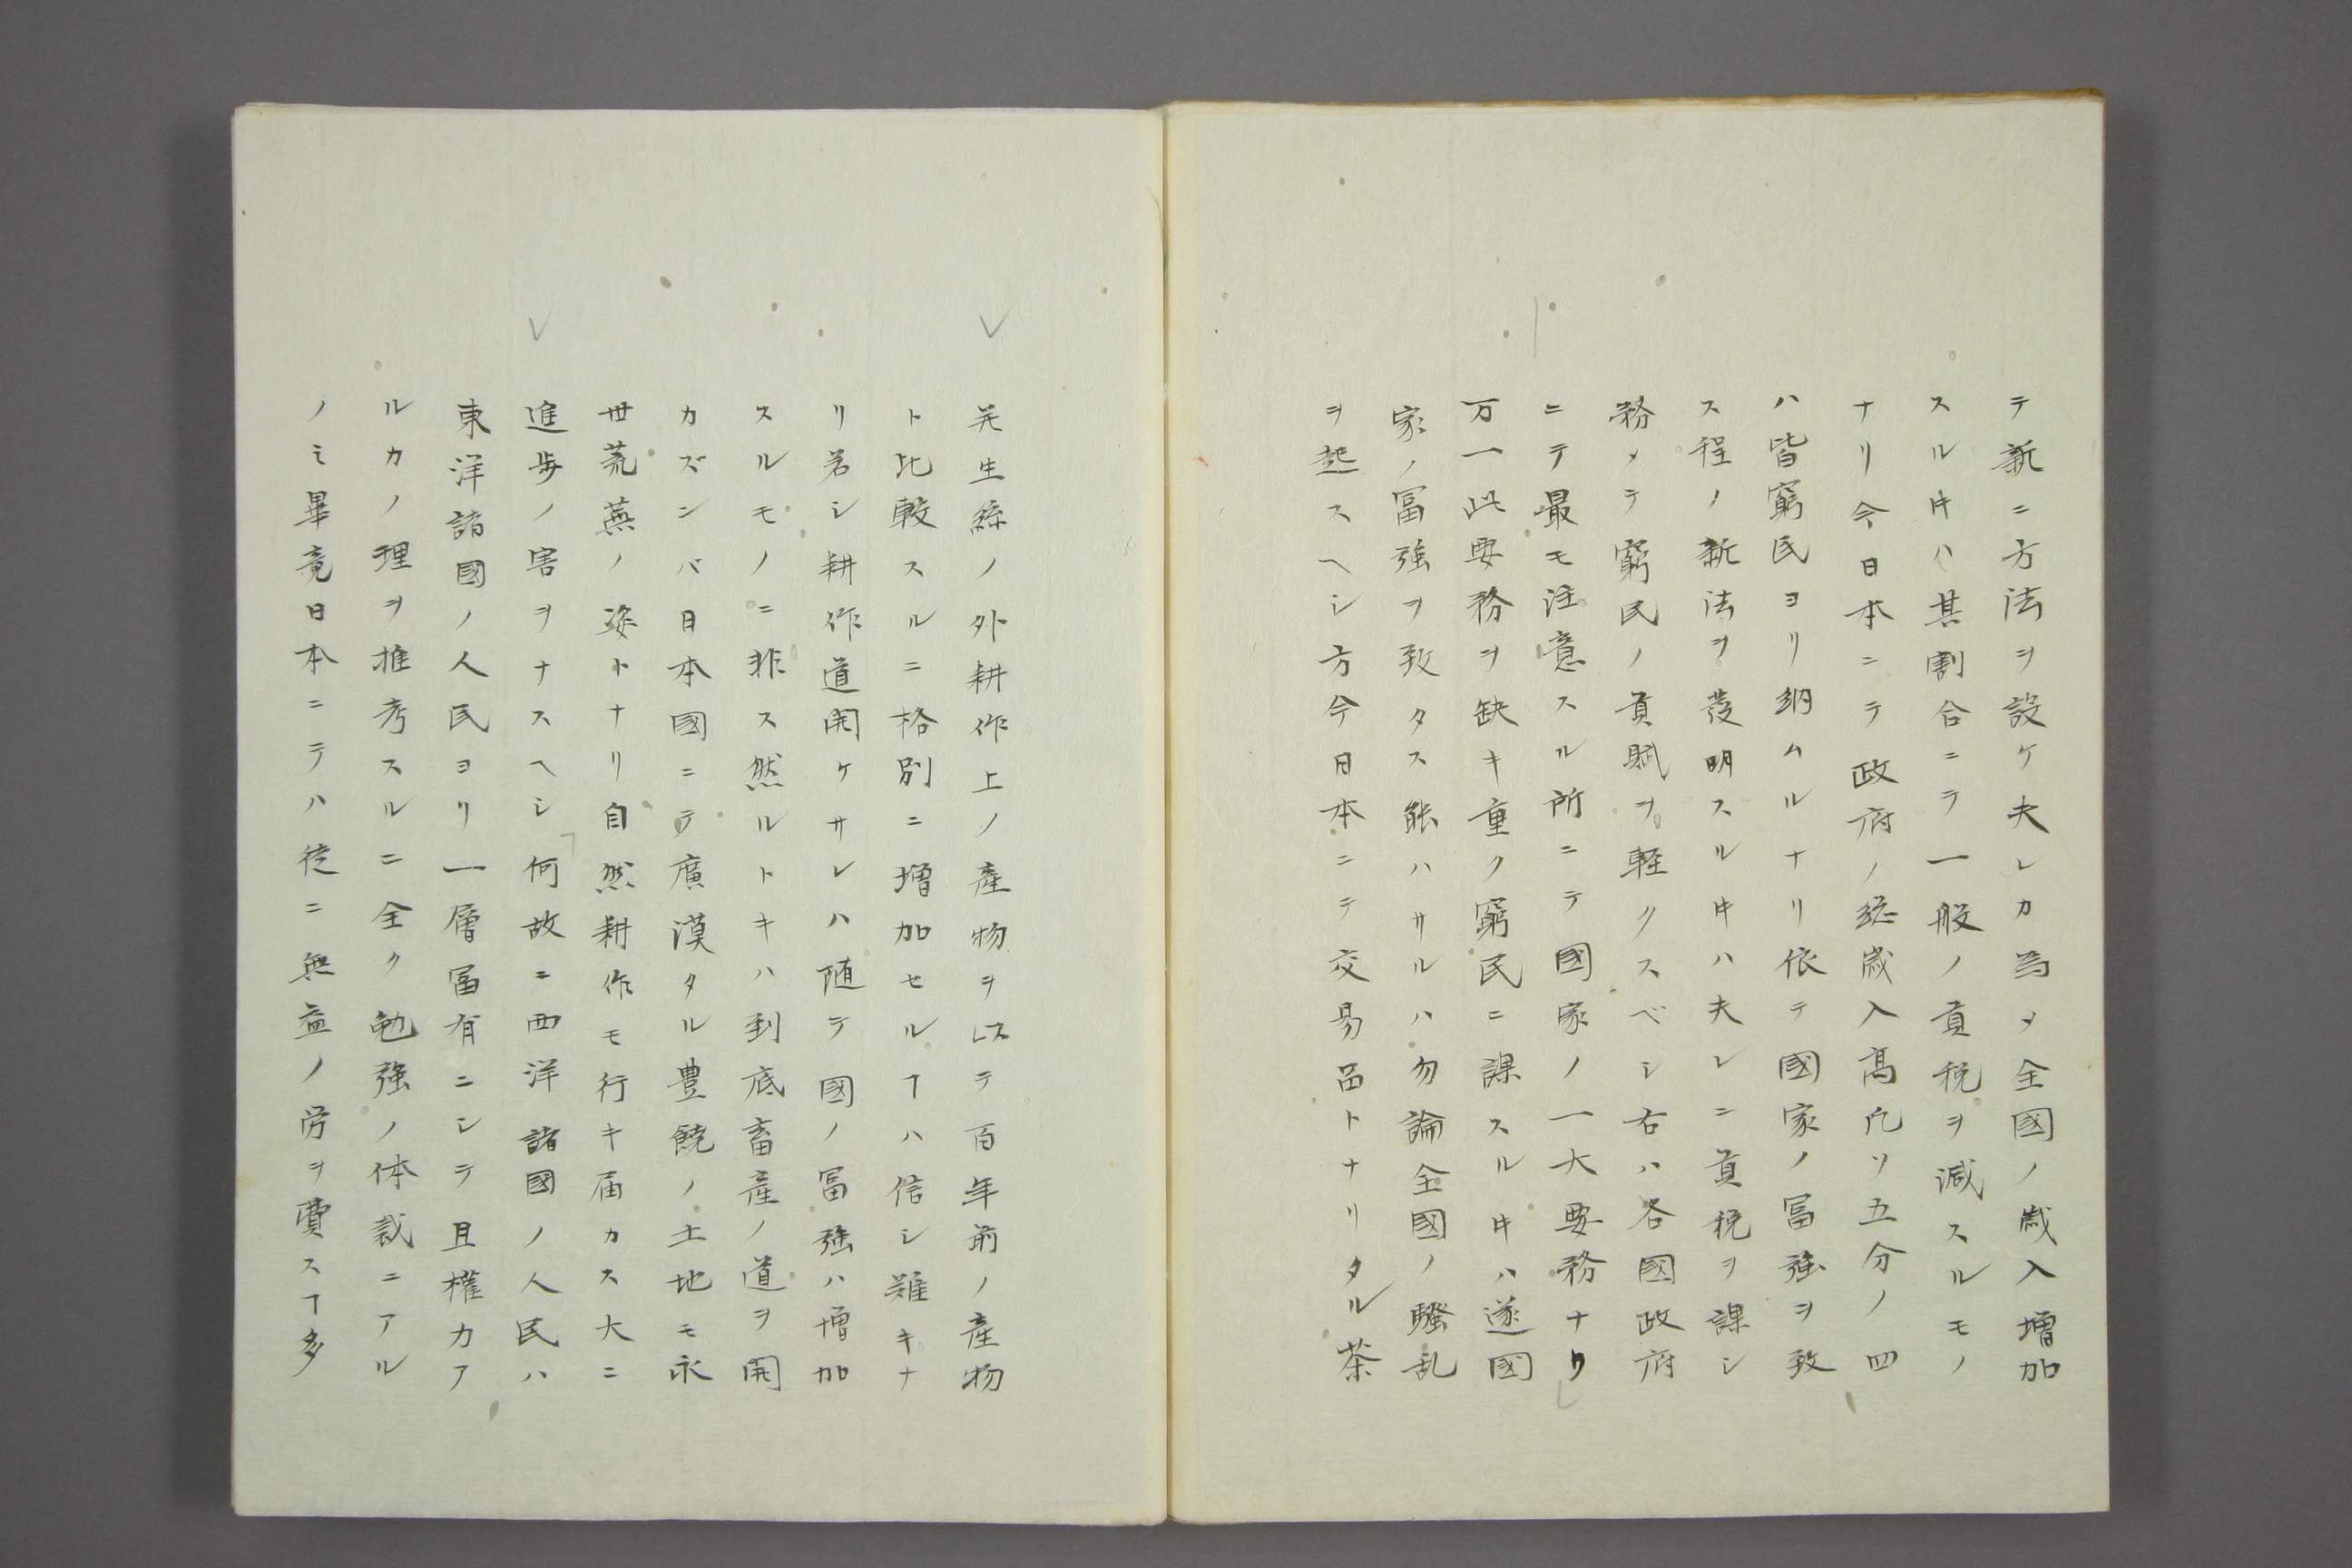 テ新ニ方法ヲ設ケ夫レカ為メ全國ノ歳入増加
スル𪜈ハ其割合ニテ一般ノ貢税ヲ減スルモノ
ナリ今日本ニテ政府ノ総歳入髙凢ソ五分ノ四
ハ皆窮民ヨリ納ムルナリ依テ國家ノ冨強ヲ致
ス程ノ新法ヲ發明スル𪜈ハ夫レニ貢税ヲ課シ
務メテ窮民ノ貢賦ヲ軽クスベシ右ハ各國政府
ニテ最モ注意スル所ニテ國家ノ一大要務ナリ
万一此要務ヲ缺キ重ク窮民ニ課スル𪜈ハ遂國
家ノ冨強ヲ致タス能ハサルハ勿論全國ノ騒乱
ヲ起スヘシ方今日本ニテ交易品トナリタル茶
并生絲ノ外耕作上ノ産物ヲ以テ百年前ノ産物
ト比較スルニ格別ニ増加セルヿハ信シ難キナ
リ若シ耕作道開ケサレハ随テ國ノ冨強ハ増加
スルモノニ非ス然ルトキハ到底畜産ノ道ヲ開
カズンバ日本國ニテ廣漠タル豊饒ノ土地モ永
世荒蕪ノ姿トナリ自然耕作モ行キ届カス大ニ
進歩ノ害ヲナスヘシ何故ニ西洋諸國ノ人民ハ
東洋諸國ノ人民ヨリ一層冨有ニシテ且權力ア
ルカノ理ヲ推考スルニ全ク勉強ノ体裁ニアル
ノミ畢竟日本ニテハ徒ニ無益ノ労ヲ費スヿ多